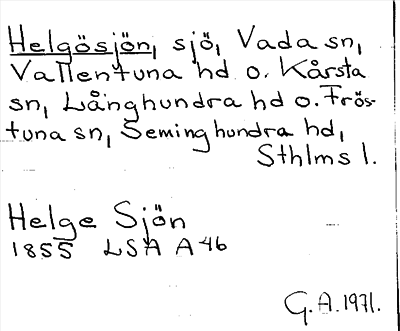 Helgösjön, sjö, Vada sn,
Vallentuna hd o. Kårsta
sn, Långhundra hd o. Frös-
tuna sn, Seminghundra hd,
Sthlms l.
Helge Sjön
1855 LSA A46
G.A. 1971.